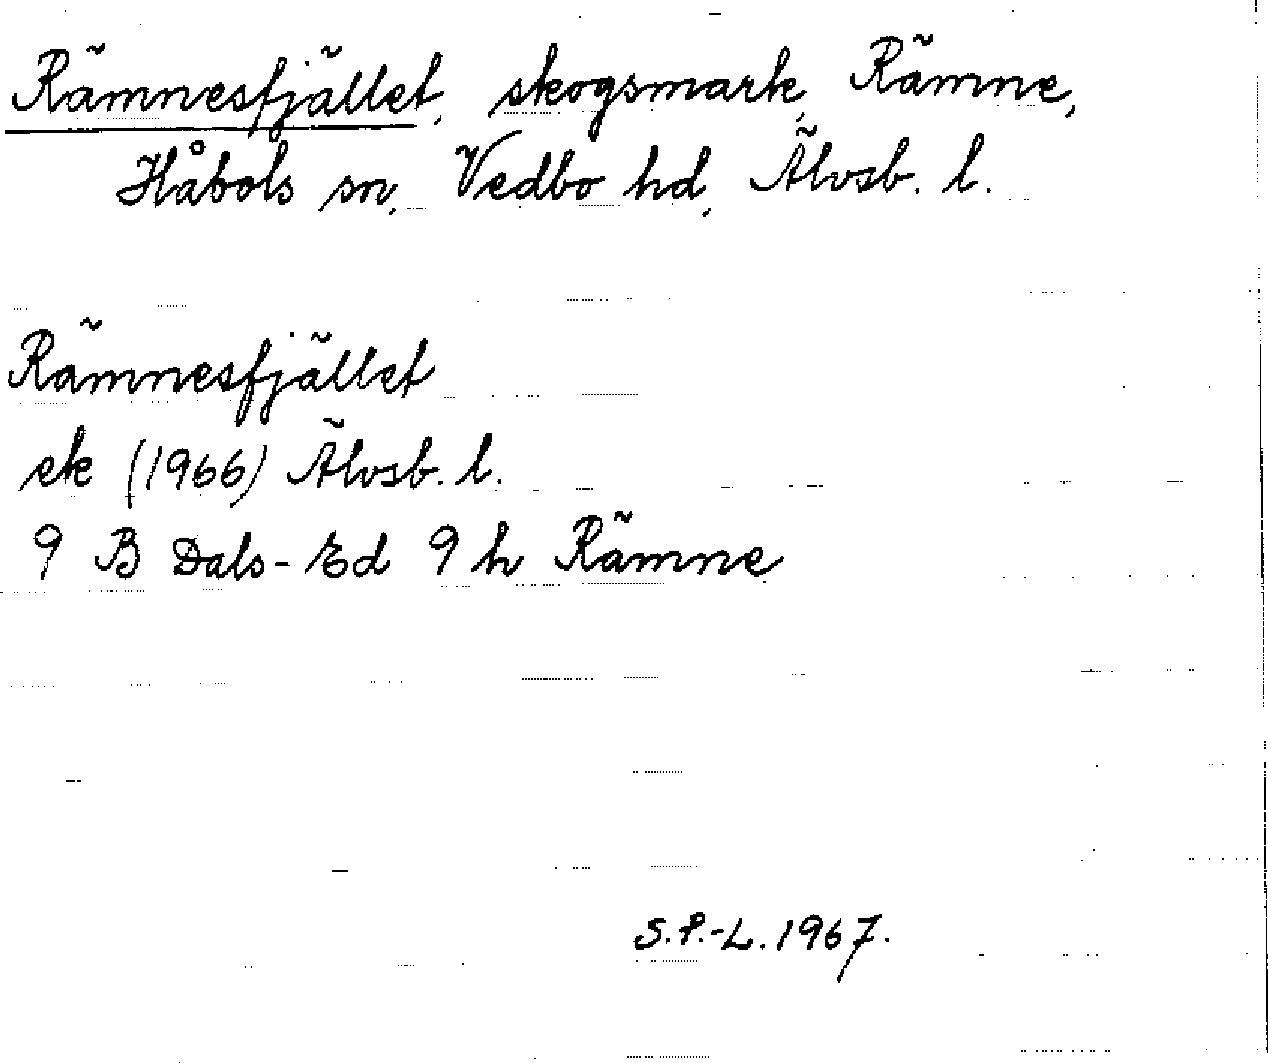 Rämnesfjället, skogsmark, Rämne,
Håbols sn, Vedbo hd, Älvsb. l.
Rämnesfjället
ek (1966) Älvsb. l.
9 B Dals-Ed 9 h Rämne
S.P.-L. 1967.